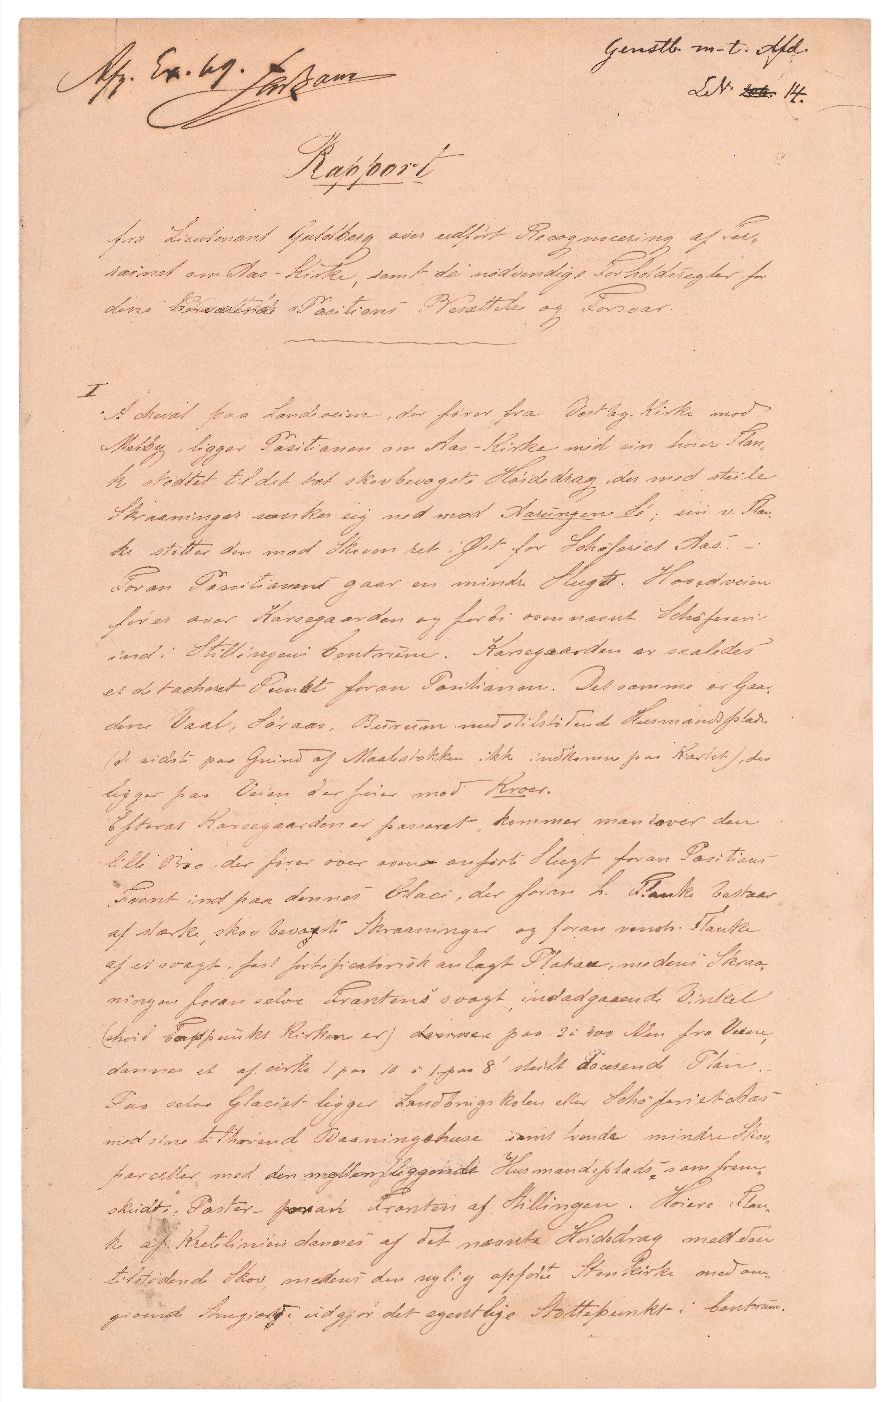 Afg. Ex. 69.
Genstb. m-t. Afd.
LN. 14.
Rapport
fra Lieutenant Guldberg over udført Recognocering af Ter-
rainet om Aas-Kirke, samt de nødvendige Forholdsregler for
dens Positions Besættelse og Forsvar.
I
A cheval paa Landeveien, der fører fra Vestby-Kirke mod
Melby, ligger Positionen om Aas-Kirke med sin høire Flan-
ke støttet til det tæt skovbevogste Høidedrag, der med steile
Skraaninger sænker sig ned mod Aarungens Sø; sin v. Flan-
ke støtter den mod Skoven ret i Øst for Schäferiet Aas. -
Foran Positionens gaar en mindre Slugt. Hovedveien
fører over Korsegaarden og forbi ovennævnt Schäferi
ind i Stillingens Centrum. Korsegaarden er saaledes
et detacheret Punkt foran Positionen. Det samme er Gaar-
dene Vaal, Søraas, Burum med tilstødende Husmandsplads
(d. sidste paa Grund af Maalestokken ikke indkomne paa Kartet), der
ligger paa Veien der fører mod Kroer.
Efterat Korsegaarden er passeret, kommer man over den
lille Bro der fører over ovenanførte Slugt foran Positions
Front ind paa dennes Glaci, der foran h. Flanke bestaar
af stærke, skovbevogste Skraaninger og foran venstr. Flanke
af et svagt, fast fortificatorisk anlagt Plateau, medens Skraa-
ningen foran selve Frontens svagt indadgaaende Vinkel
(hvis Toppunkt Kirken er) paa 3 à 400 Alen fra Veien,
dannes et af cirka 1 paa 10 à 1 paa 8 steilt Plan. -
Paa selve Glaciet ligger Landbrugskolen eller Schäferiet Aas
med sine tilhørend Vaaningshuse samt tvende mindre Skov-
parceller med den mellemliggende Husmandsplads, som frem-
skudte Poster foran Fronten af Stillingen. Høiere Flan-
ke af Kretelinien dannes af det nævnte Høidedrag med den
tilstødende Skov, medens den nylig opførte Stenkirke med om-
givende udgjør det egentlige Støttepunkt i Centrum.